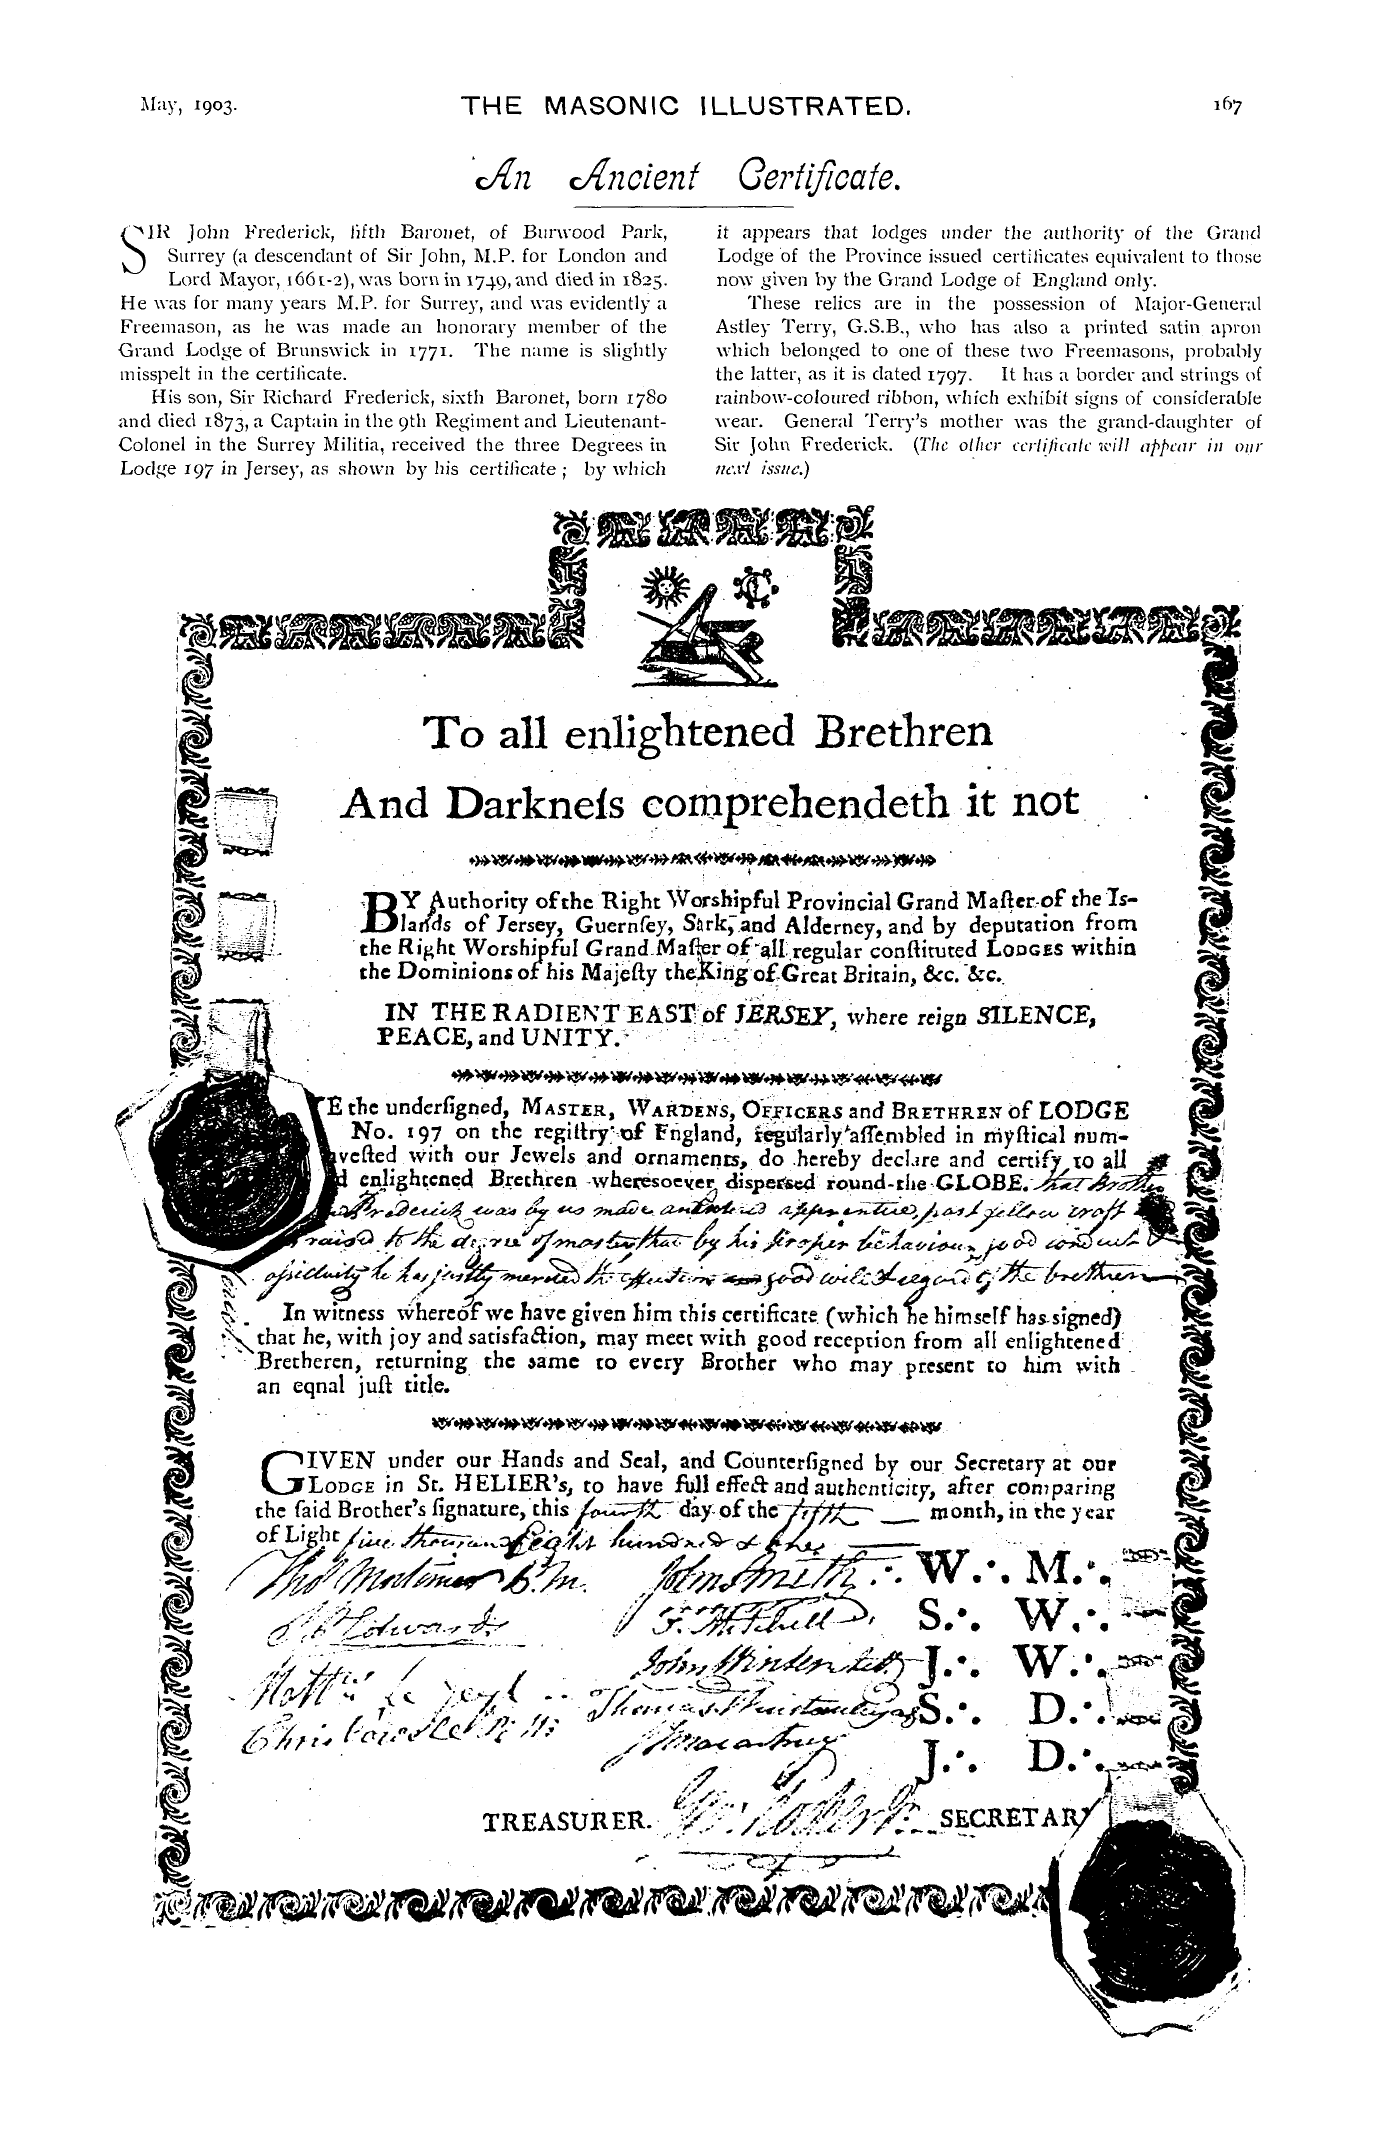 May, 1903.
THE MASONIC ILLUSTRATED.
167
An Ancient Certificate.
SIR John Frederick, fifth Baronet, of Burwood Park,
Surrey (a descendant of Sir John, M.P. for London and
Lord Mayor, 1661-2), was born in 1749, and died in 1825.
He was for many years M.P. for Surrey, and was evidently a
Freemason, as he was made an honorary member of the
Grand Lodge of Brunswick in 1771. The name is slightly
misspelt in the certificate.
His son, Sir Richard Frederick, sixth Baronet, born 1780
and died 1873, a Captain in the 9th Regiment and Lieutenant-
Colonel in the Surrey Militia, received the three Degrees in
Lodge 197 in Jersey, as shown by his certificate; by which
it appears that lodges under the authority of the Grand
Lodge of the Province issued certificates equivalent to those
now given by the Grand Lodge of England only.
These relics are in the possession of Major-General
Astley Terry, G.S.B., who has also a printed satin apron
which belonged to one of these two Freemasons, probably
the latter, as it is dated 1797. It has a border and strings of
rainbow-coloured ribbon, which exhibit signs of considerable
wear. General Terry's mother was the grand-daughter of
Sir John Frederick. (The other certificate will appear in our
next issue.)
To all enlightened Brethren
And Darkneſs comprehendeth it not
BY Authority of the Right Worshipful Provincial Grand Maſter of the Is-
lands of Jersey, Guernſey, Sark, and Alderney, and by deputation from
the Right Worshipful Grand Maſter of all regular conſtituted LODGES within
the Dominions of his Majeſty the King of Great Britain, &c. &c.
IN THE RADIENT EAST of JERSEY, where reign SILENCE,
PEACE, and UNITY.
E the underſigned, MASTER, WARDENS, OFFICERS and BRETHREN of LODGE
No. 197 on the regiſtry of England, regularly aſſembled in myſtical num-
veſted with our Jewels and ornaments, do hereby declare and certify to all
d enlightened Brethren wheresoever dispersed round the GLOBE. that Brother
Frederick was by us made an entered apprentice, past fellow craft
raised to the degree of master, that by his proper behaviour, good conduct
assiduity he has justly merited the affection good will & regard of the brethren
In witness whereof we have given him this certificate (which he himself has signed)
that he, with joy and satisfaction, may meet with good reception from all enlightened
Bretheren, returning the same to every Brother who may present to him with
an eqnal juſt title.
GIVEN under our Hands and Seal, and Counterſigned by our Secretary at our
LODGE in St. HELIER's, to have full effect and authenticity, after comparing
the ſaid Brother's ſignature, this fourth day of the fifth month, in the year
of Light five thousand Eight hundred &
Thos Mortimer P.M. John Smith W.·. M.·.
Edwards F. Mitchell S.·. W.·.
John J.·. W.·.
Thomas S.·. D.·.
J.·. D.·.
TREASURER. SECRETARY